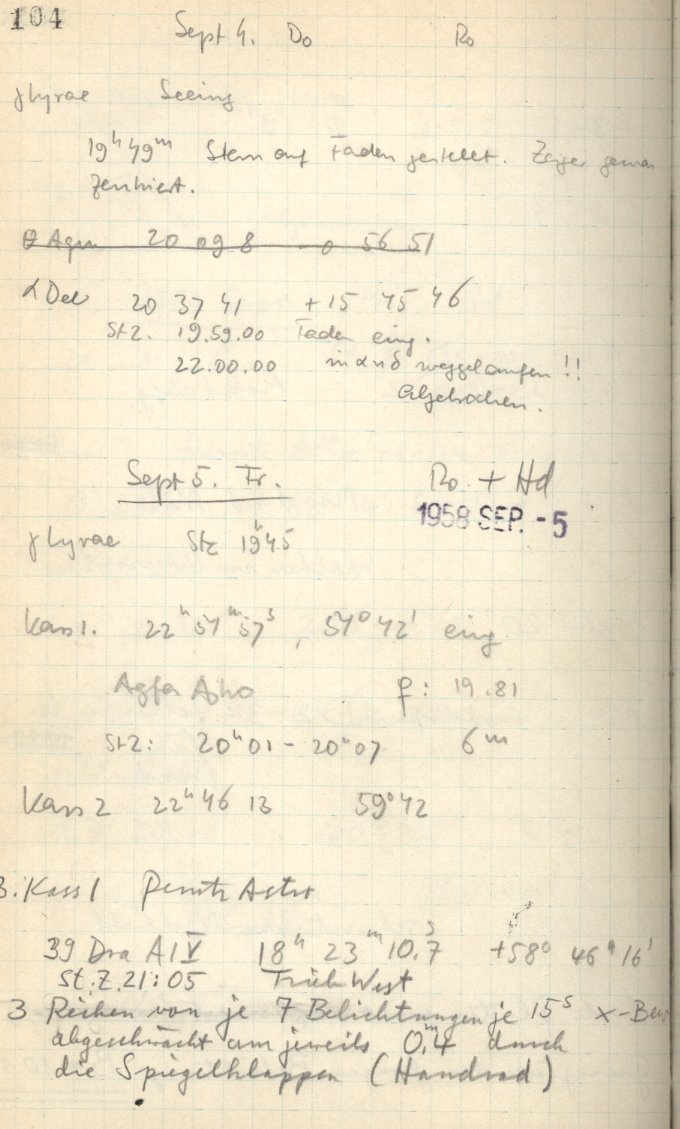 104
Sept 4. Do Ro
γ Lyrae Seeing
19ʰ 49ᵐ Stern auf Faden gestellt. Zeiger genau
zentriert.
θ Aqu 20 09 8 - 0 56 51
α Del 20 37 41 +15 45 46
StZ. 19.59.00 Faden eing.
22.00.00 in α u δ weggelaufen !!
Abgebrochen.
Sept 5. Fr. Ro + Hd
1958 SEP. -5
γ Lyrae Stz 19ʰ45
Kass 1. 22ʰ 57ᵐ 57ˢ, 57° 42' eing
Agfa : 19.81
StZ: 20ʰ01 - 20ʰ07 6ᵐ
Kass 2 22ʰ 46 13 59° 42
3. Kass 1 Perutz Astro
39 Dra A1V 18ʰ 23ᵐ 10.ˢ7 +58° 46" 16'
St.Z. 21:05 Trieb West
3 Reihen von je 7 Belichtungen je 15ˢ x-Bew
abgeschwächt um jeweils 0.ᵐ4 durch
die Spiegelklappen (Handrad)